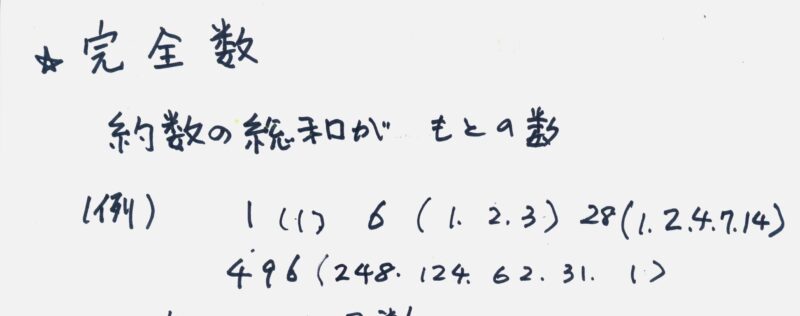 ☆ 完全数
約数の総和が もとの数
(例) 1 (1) 6 (1. 2. 3) 28 (1. 2. 4. 7. 14)
496 (248. 124. 62. 31. 1)